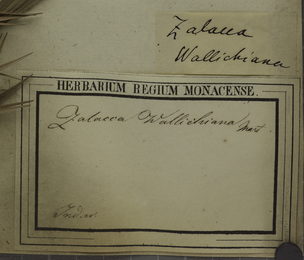 Zalacca
Wallichiana
HERBARIUM REGIUM MONACENSE.
Zalacca Wallichiana Mart